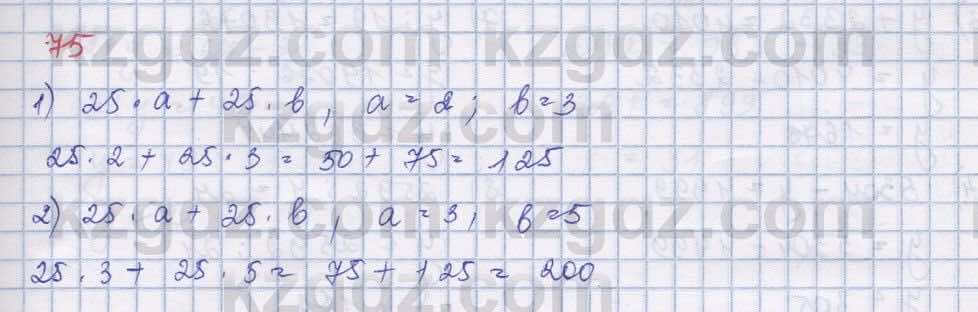 75
1) 25 · a + 25 · b, a = 2; b = 3
25 · 2 + 25 · 3 = 50 + 75 = 125
2) 25 · a + 25 · b, a = 3; b = 5
25 · 3 + 25 · 5 = 75 + 125 = 200
kzgdz.com kzgdz.com
kzgdz.com
kzgdz.com kzgdz.com
kzgdz.com